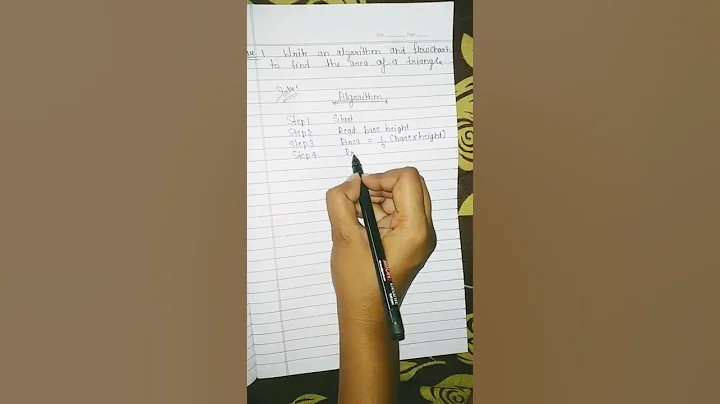 1 Write an algorithm and flowchart
to find the area of a triangle.
Solve
Algorithm
Step 1 Start
Step 2 Read base height
Step 3 Area = 1/2 [base x height]
Step 4